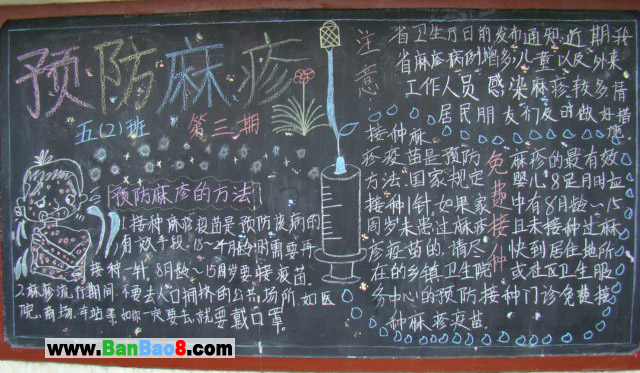 预防麻疹
五(2)班 第三期
预防麻疹的方法
1.接种麻疹疫苗是预防该病的
有效手段,
接种一针,8月龄~15月岁要接疫苗.
2.麻疹流行期间,不要去人口拥挤的公共场所如医
院、商场、车站
要去,就要戴口罩
注意:
省卫生厅日前发布通知近期我
省麻疹病例增多,儿童以及外来
工作人员感染麻疹较多请
居民朋友们及时做好措
施.
接种麻
疹疫苗是预防
方法,国家规定
接种1针,如果家
周岁未患过麻疹
疹疫苗的,请尽
在的乡镇卫生院
免费接种
麻疹的最有效
婴儿8足月时应
中有8月龄~15
且未接种过麻
快到居住地所
或社区卫生服
务中心的预防接种门诊免费接
种麻疹疫苗.
www.BanBao8.com